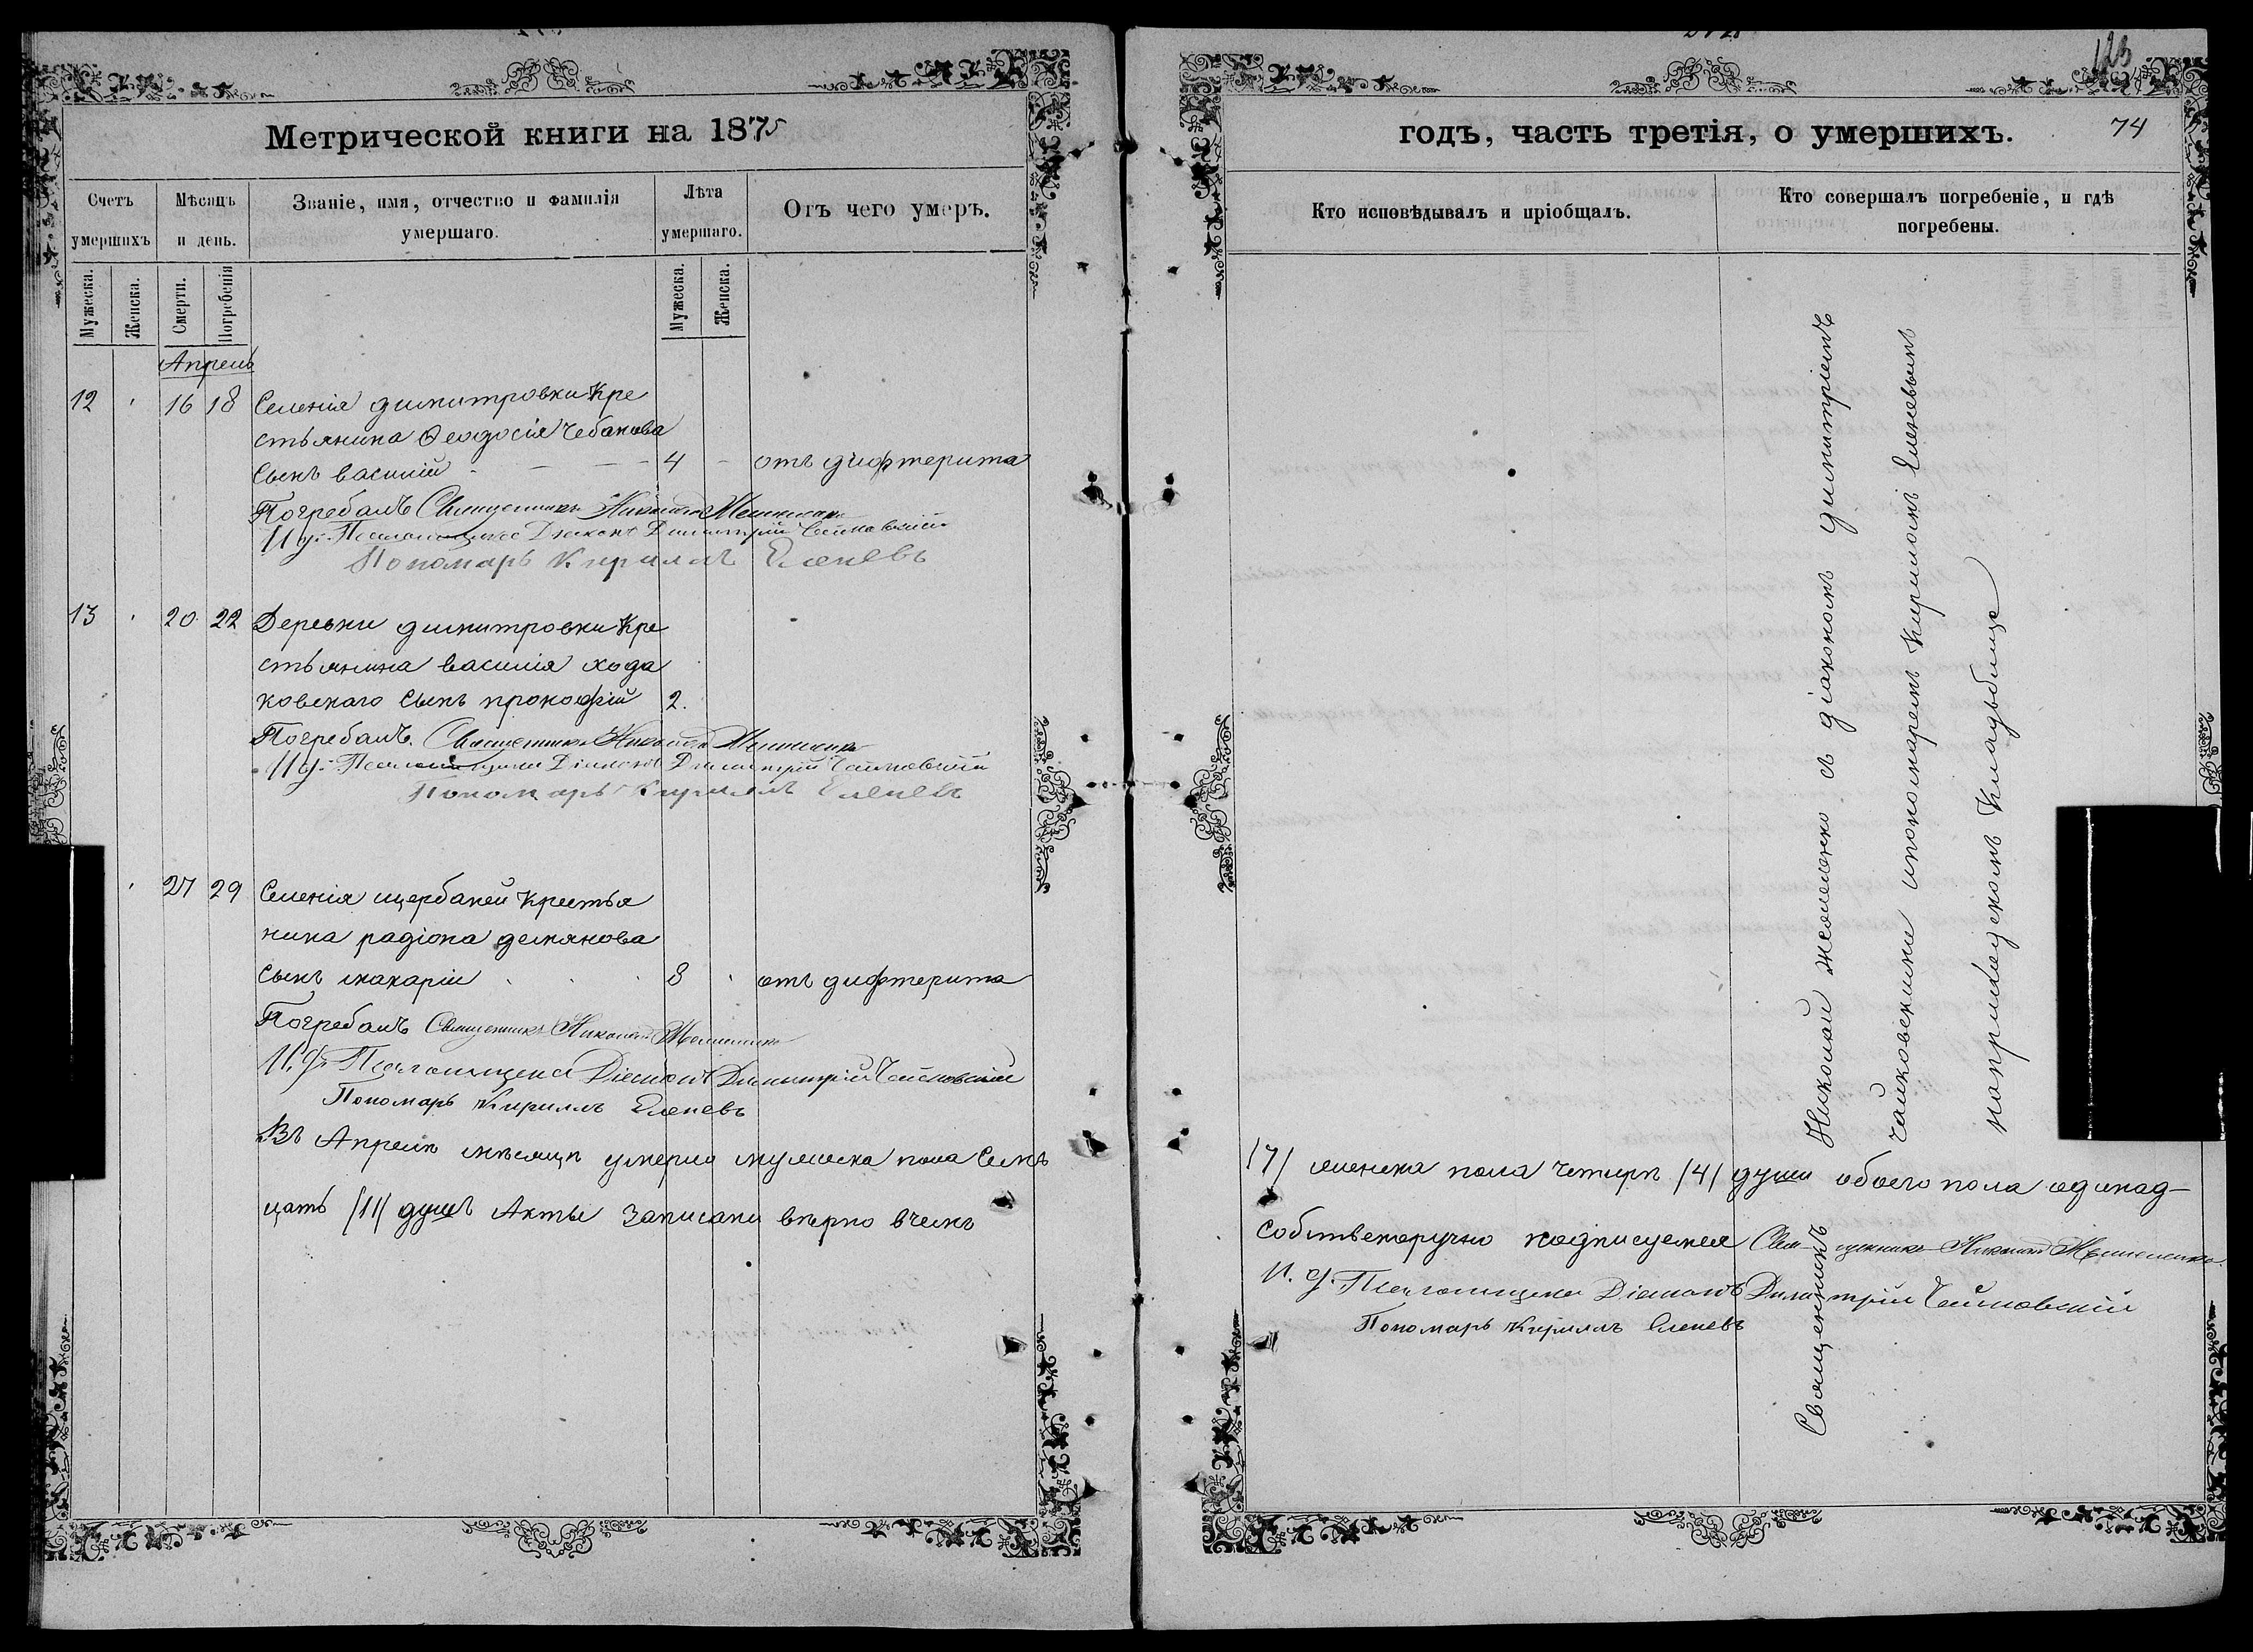 Метрической книги на 1875
Счетъ умершихъ
Мѣсяцъ и день.
Званіе, имя, отчество и фамилія умершаго.
Лѣта умершаго.
Отъ чего умеръ.
Мужеска.
Женска.
Смерти.
Погребенія
Мужеска.
Женска.
Апрель
12 16 18 Селенія димитровки Кре
стьянина Ѳеодосія Чебанова
Сынъ василій 4 отъ дифтерита
Погребалъ Священникъ Николай
И. д. Псаломщика Діаконъ Димитрій Чайковскій
Пономарь Кириллъ Еленевъ
13 20 22 Деревни димитровки Кре
стьянина василія хода
ковскаго Сынъ прокофій 2.
Погребалъ Священникъ Николай
И. д. Псаломщика Діаконъ Димитрій Чайковскій
Пономарь Кириллъ Еленевъ
27 29 Селенія щербаней Крестья
нина радіона демянова
Сынъ макарій 8 отъ дифтерита
Погребалъ Священникъ Николай
И. д. Псаломщика Діаконъ Димитрій Чайковскій
Пономарь Кириллъ Еленевъ
Въ Апрелѣ мѣсяцѣ умерло мужеска пола Семь
цать /11/ душъ Акты записаны вѣрно в чемъ
годъ, часть третія, о умершихъ. 74
Кто исповѣдывалъ и пріобщалъ.
Кто совершалъ погребеніе, и гдѣ погребены.
Священникъ Николай с діакономъ димитріемъ
Чайковскимъ ипономаремъ Кириломъ Еленевымъ
наприходскомъ Кладбище
/7/ женска пола четыре /4/ души обоего пола одинад-
собственоручно подписуемся Священникъ Николай
И. д. Псаломщика Діаконъ Димитрій Чайковскій
Пономарь Кириллъ Еленевъ